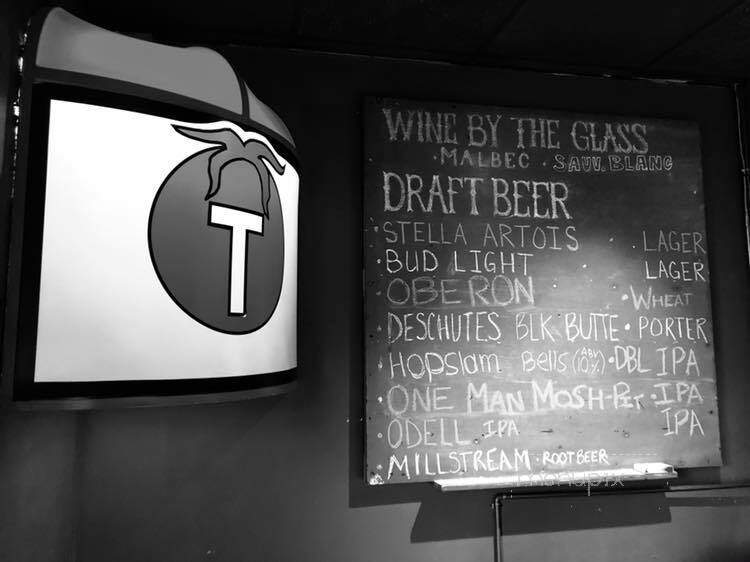 T
WINE BY THE GLASS
· MALBEC · SAUV. BLANC
DRAFT BEER
· STELLA ARTOIS · LAGER
· BUD LIGHT LAGER
· OBERON · WHEAT
· DESCHUTES BLK BUTTE · PORTER
· HOPSLAM Bells (ABV 10%) · DBL IPA
· ONE MAN MOSH-PIT · IPA
· ODELL IPA IPA
· MILLSTREAM · ROOT BEER